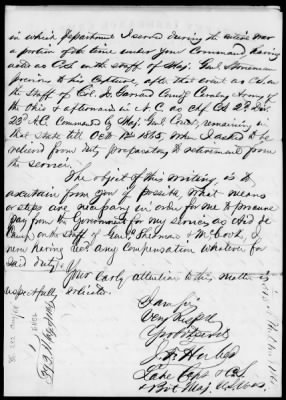 in which Department I served during the entire war
a portion of the time under your Command having
acted as A.C.S. with the staff of Maj. Genl Stoneman
previous to his Capture, after that event as C.S. on
the staff of Col. I. Garrard Comdg Cavalry Army of
the Ohio & afterwards in N.C. as Chf C.S. 2d Div
23d A.C. Commanded by Maj. Genl Couch, remaining in
that state till Oct 1865, when I asked to be
relieved from duty preparatory to retirement from
the service.
The object of this writing is to
ascertain from you if possible, what means
or steps are necessary in order for me to procure
pay from the Government for my services as Aid de
Camp on the staff of Genls Sherman & McCook, I
never having recd any Compensation whatever for
said duty.
Your early attention to this matter is
respectfully solicited.
I am Sir
Very Respect
Your Obt Servt
Late Capt & C.S.
& Bvt Maj. U.S. Vols.